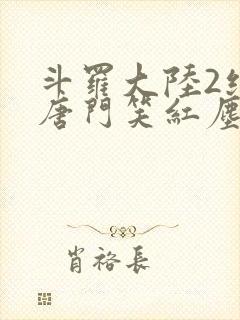 斗羅大陸2絕
唐門笑紅塵
肖裕長